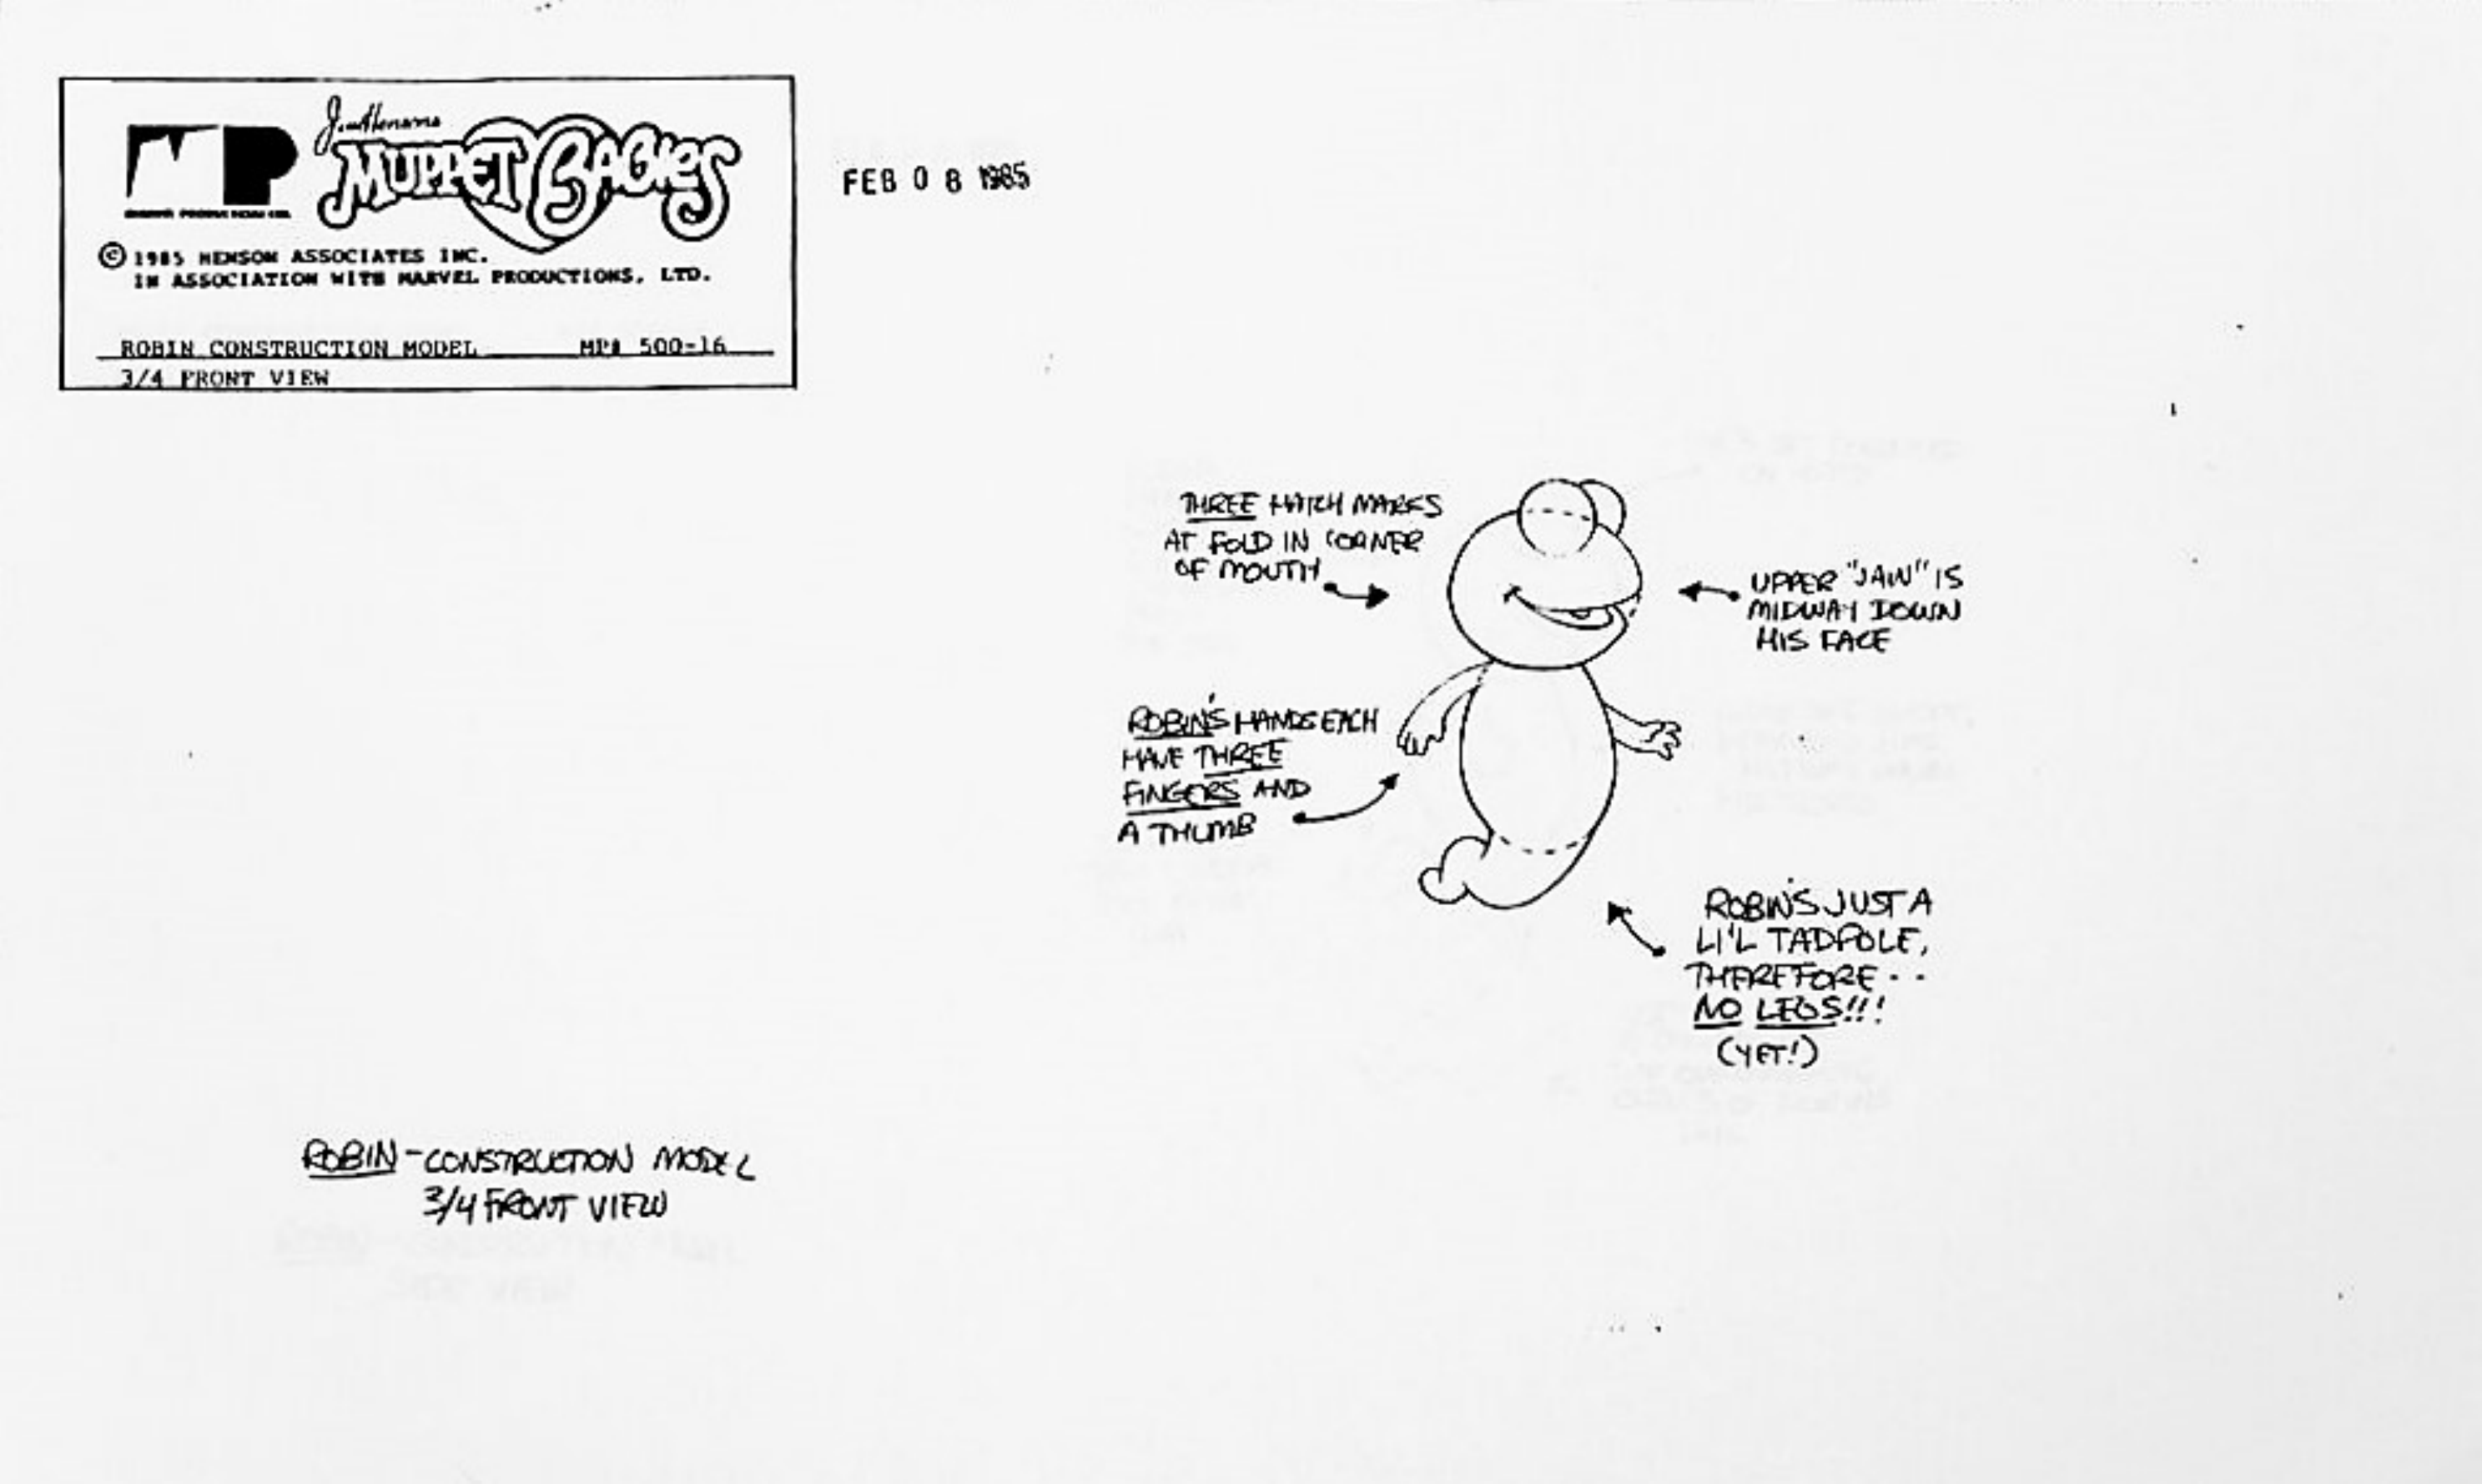 Jim Henson's
MUPPET BABIES
MP
© 1985 HENSON ASSOCIATES INC.
IN ASSOCIATION WITH MARVEL PRODUCTIONS, LTD.
ROBIN CONSTRUCTION MODEL MP# 500-16
3/4 FRONT VIEW
FEB 08 1985
THREE HATCH MARKS
AT FOLD IN CORNER
OF MOUTH
UPPER "JAW" IS
MIDWAY DOWN
HIS FACE
ROBIN'S HANDS EACH
HAVE THREE
FINGERS AND
A THUMB
ROBIN'S JUST A
LI'L TADPOLE,
THEREFORE--
NO LEGS!!!
(YET!)
ROBIN - CONSTRUCTION MODEL
3/4 FRONT VIEW